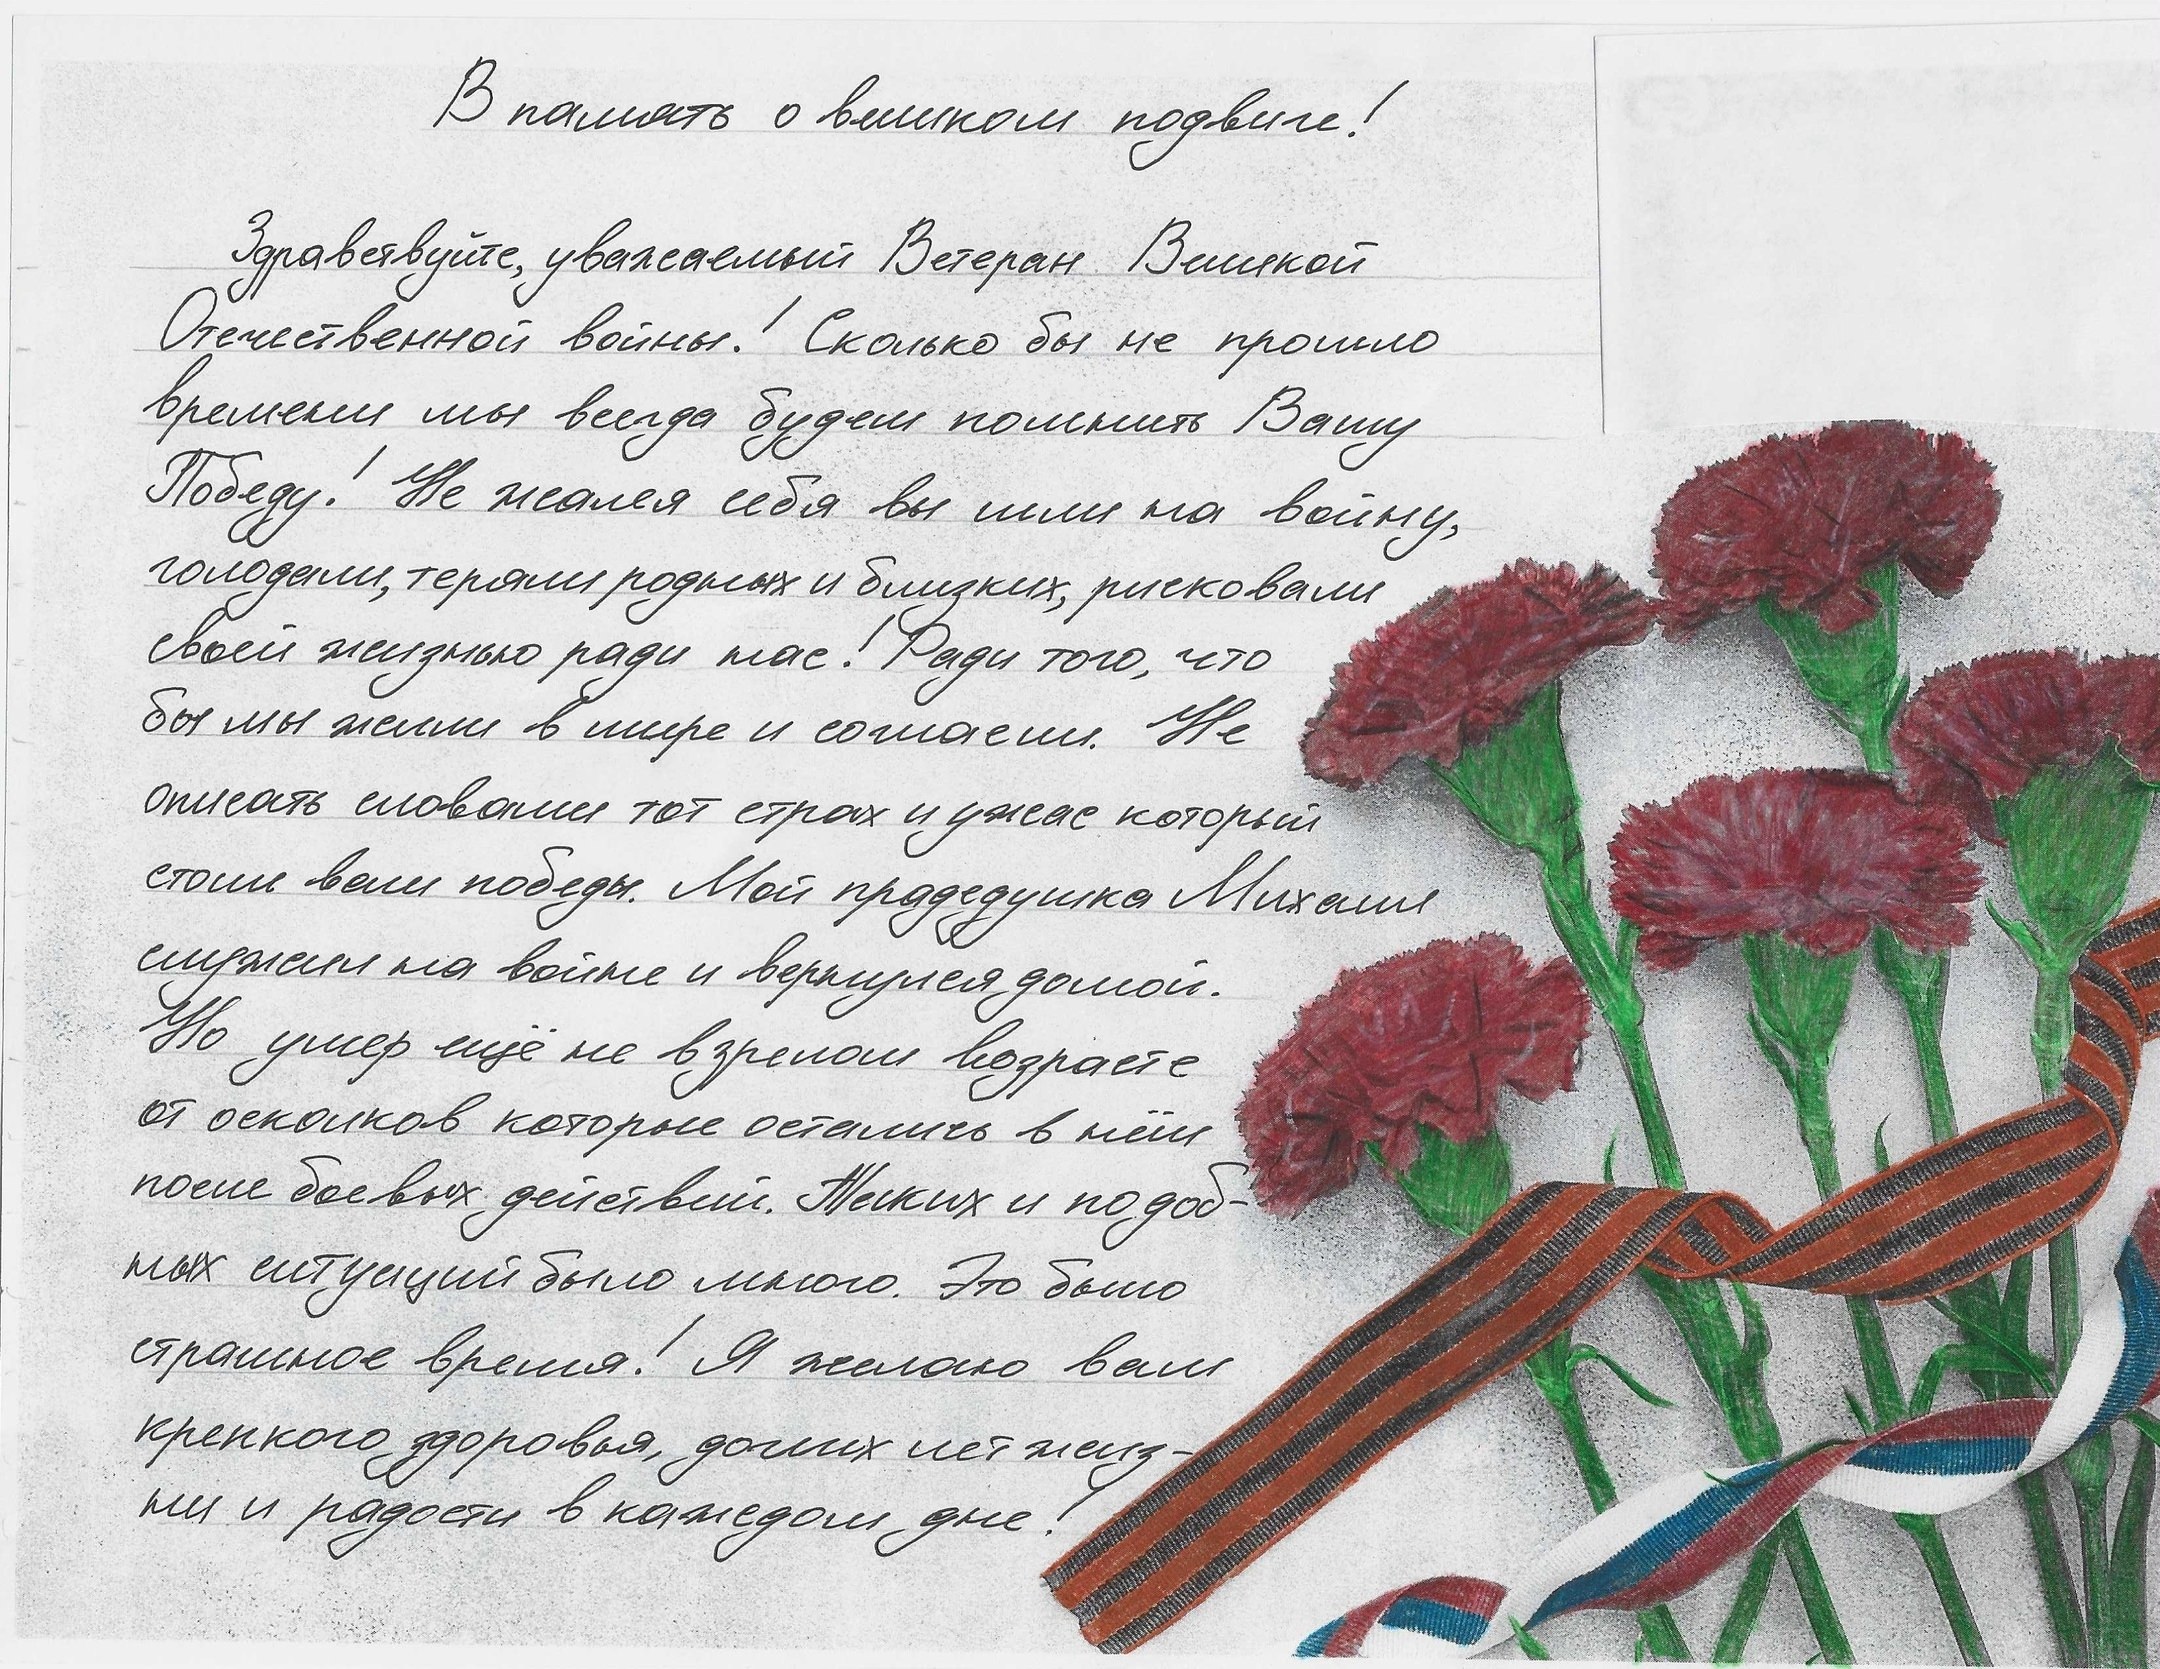 В память о великом подвиге!
Здравствуйте, уважаемый Ветеран Великой
Отечественной войны! Сколько бы не прошло
времени мы всегда будем помнить Вашу
Победу! Не жалея себя вы шли на войну,
голодали, теряли родных и близких, рисковали
своей жизнью ради нас! Ради того, что
бы мы жили в мире и согласии. Не
описать словами тот страх и ужас который
стоил вам победы. Мой прадедушка Михаил
служил на войне и вернулся домой.
Но умер ещё не в зрелом возрасте
от осколков которые остались в нём
после боевых действий. Таких и подоб-
ных ситуаций было много. Это было
страшное время! Я желаю вам
крепкого здоровья, долгих лет жиз-
ни и радости в каждом дне!